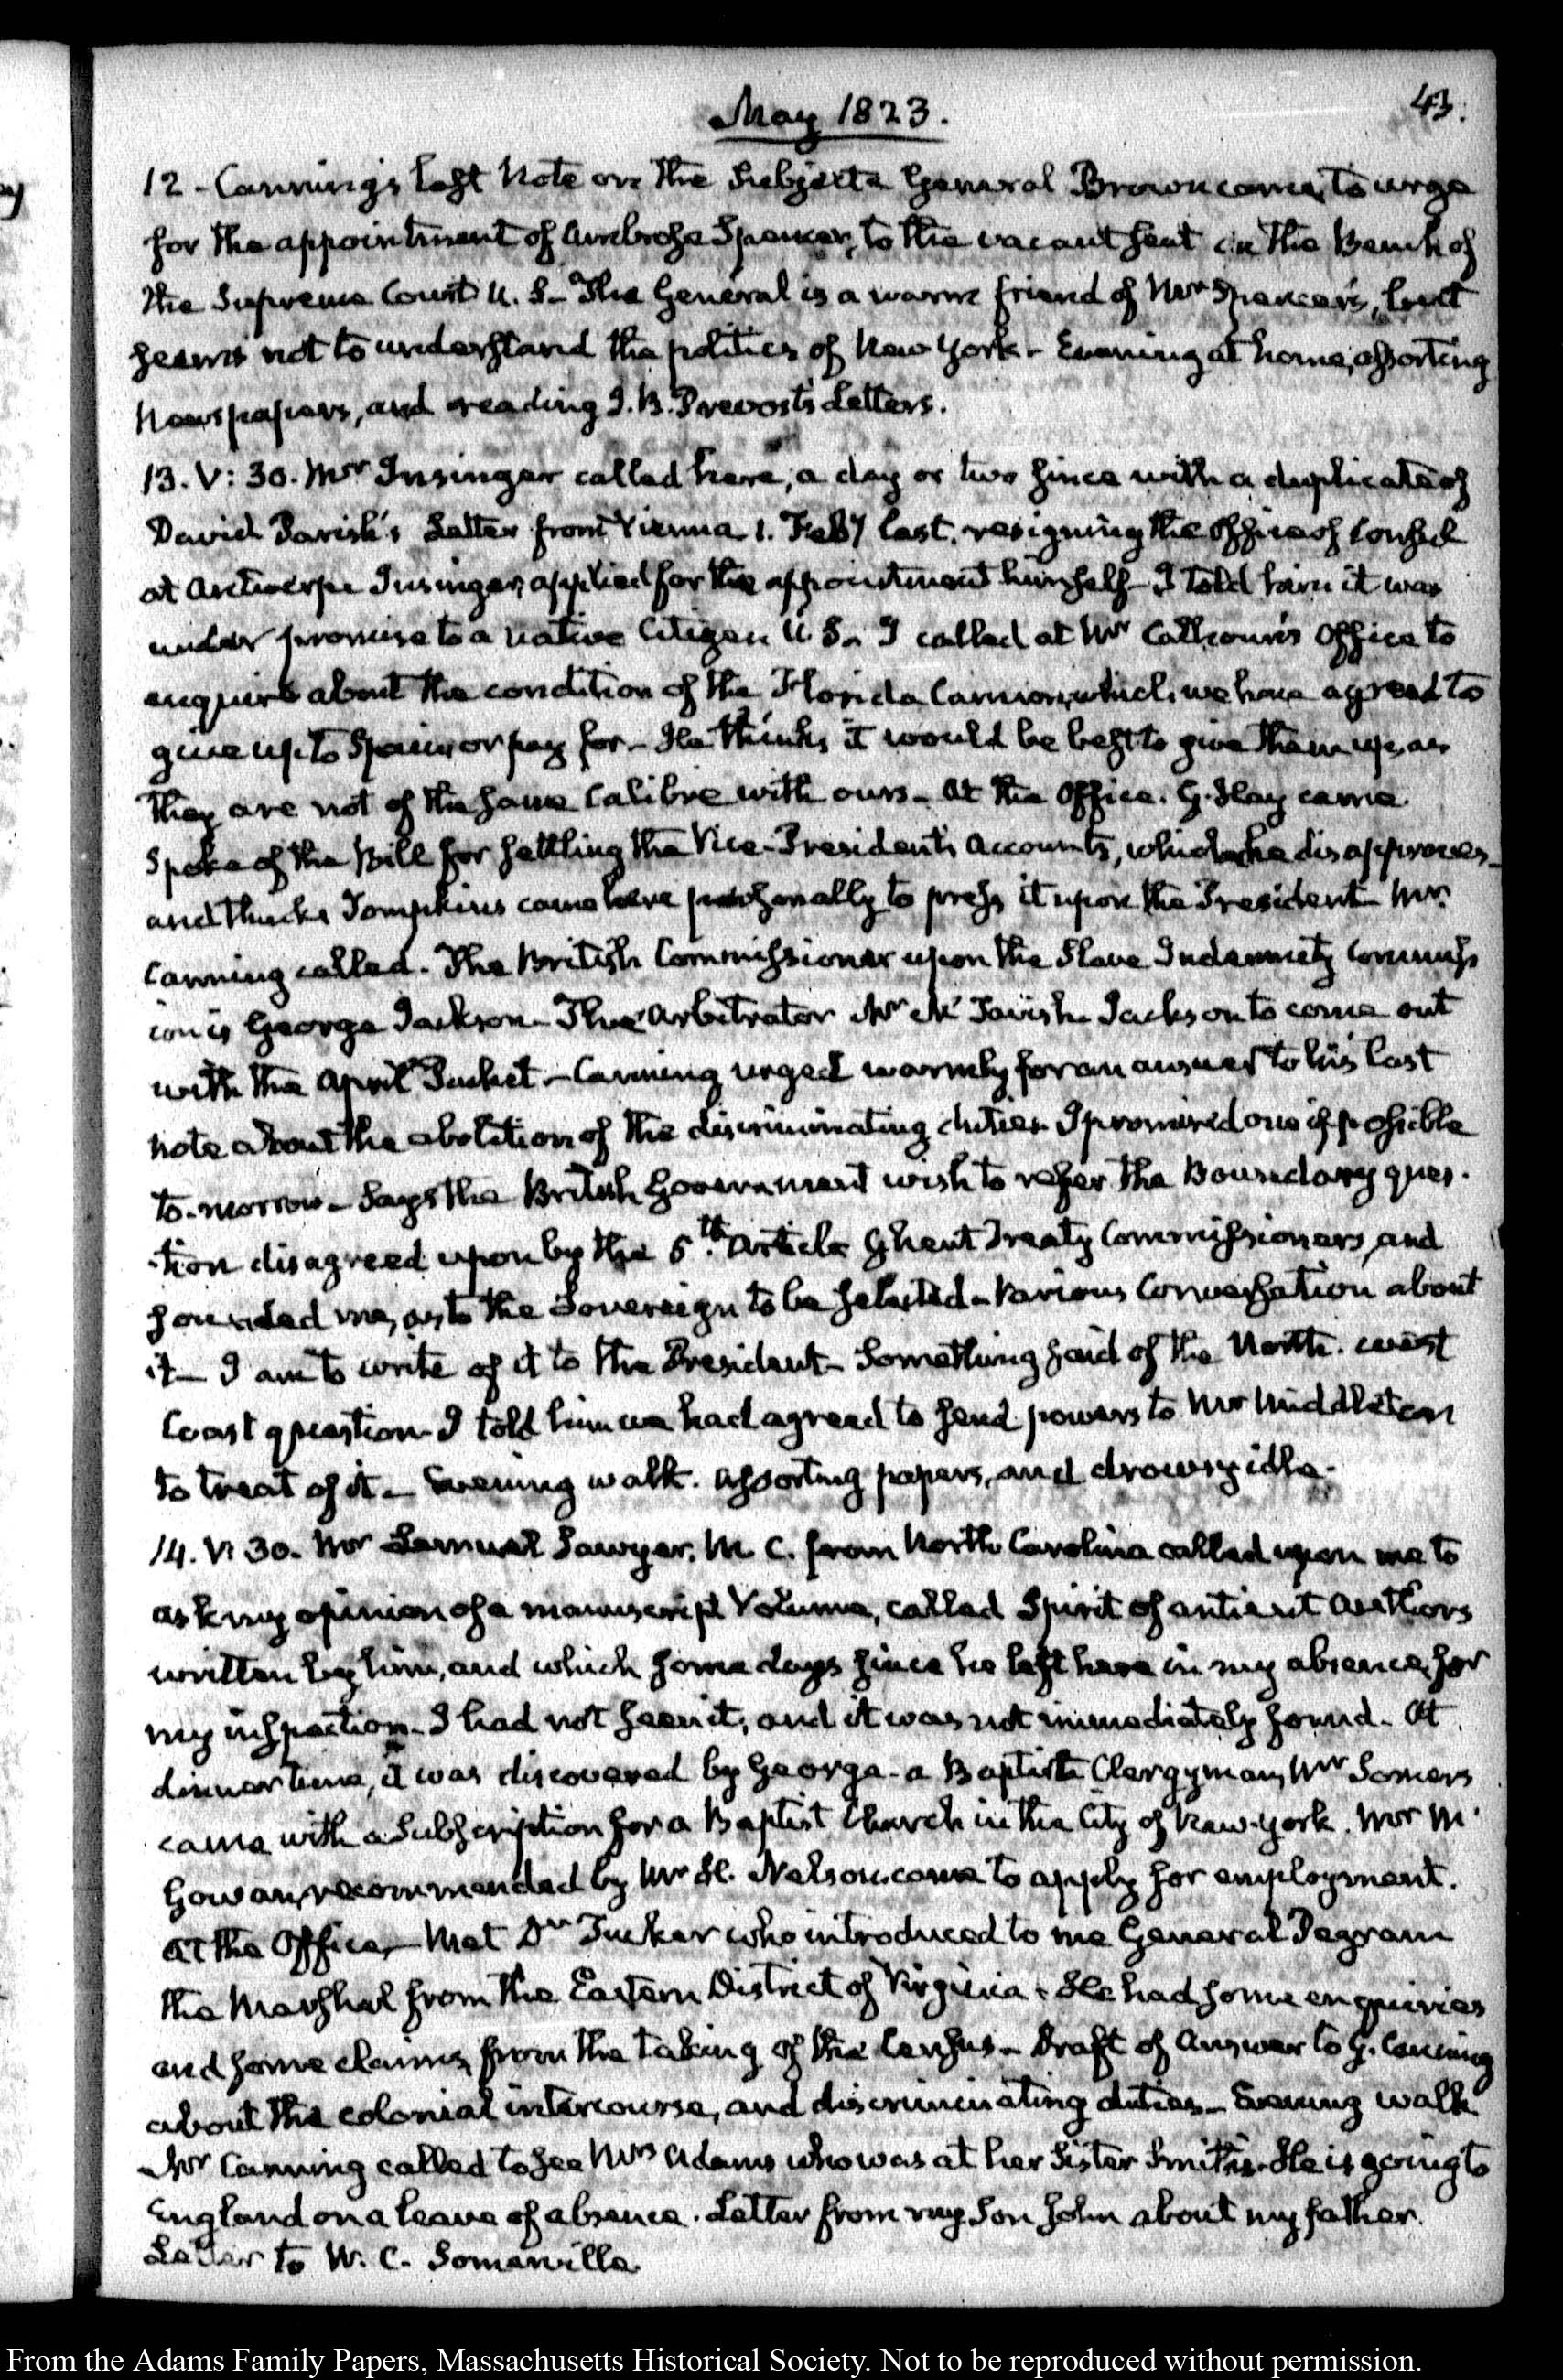 May 1823.
43.
12 - Canning's last Note on the Subject. General Brown came, to urge
for the appointment of Ambrose Spencer, to the vacant seat on the Bench of
the Supreme Court U. S - The General is a warm friend of Mr Spencer's, but
seems not to understand the politics of New York - Evening at home, assorting
Newspapers, and reading J. B. Prevost's Letters.
13. V: 30. Mr Insinger called here, a day or two since with a duplicate of
David Parish's Letter from Vienna 1. Feby last, resigning the Office of Consul
at Antwerp. Insinger, applied for the appointment himself - I told him it was
under promise to a native Citizen U. S. I called at Mr Calhoun's Office to
enquire about the condition of the Florida Cannon, which we have agreed to
give up to Spain, or pay for - He thinks it would be best to give them up, as
they are not of the same Calibre with ours - At the Office. G. Hay came.
Spoke of the Bill for settling the Vice-President's Accounts, which he disapproves -
and thinks Tompkins came here personally to press it upon the President - Mr.
Canning called. The British Commissioner upon the Slave Indemnity Commiss
ion is George Jackson - The Arbitrator Mr Mc Tavish. Jackson to come out
with the April Packet - Canning urged warmly for an answer to his last
note about the abolition of the discriminating duties. I promised one if possible
to-morrow - Says the British Government wish to refer the Boundary ques-
-tion disagreed upon by the 5th. Article Ghent Treaty Commissioners, and
sounded me, as to the Sovereign to be selected - Various Conversation about
it - I am to write of it to the President - Something said of the North-west
Coast question - I told him we had agreed to send powers to Mr Middleton
to treat of it - Evening walk. Assorting papers, and drowsy idle.
14. V: 30. Mr Lemuel Sawyer. M. C. from North Carolina called upon me to
ask my opinion of a manuscript Volume, called Spirit of antient Authors
written by him, and which some days since he left here in my absence, for
my inspection - I had not seen it, and it was not immediately found - At
dinner time, it was discovered by George - a Baptist Clergyman, Mr Somers
came with a Subscription for a Baptist Church in the City of New-York. Mr Mc
Gowan, recommended by Mr H. Nelson came to apply for employment.
At the Office, - Met Dr Tucker who introduced to me General Pegram
the Marshal from the Eastern District of Virginia - He had some enquiries
and some claims, from the taking of the Census - Draft of Answer to G. Canning
about the colonial intercourse, and discriminating duties - Evening walk
Mr Canning called to see Mrs Adams who was at her Sister Smith's - He is going to
England on a leave of absence. Letter from my Son John about my father.
Letter to W. C. Somerville.
From the Adams Family Papers, Massachusetts Historical Society. Not to be reproduced without permission.